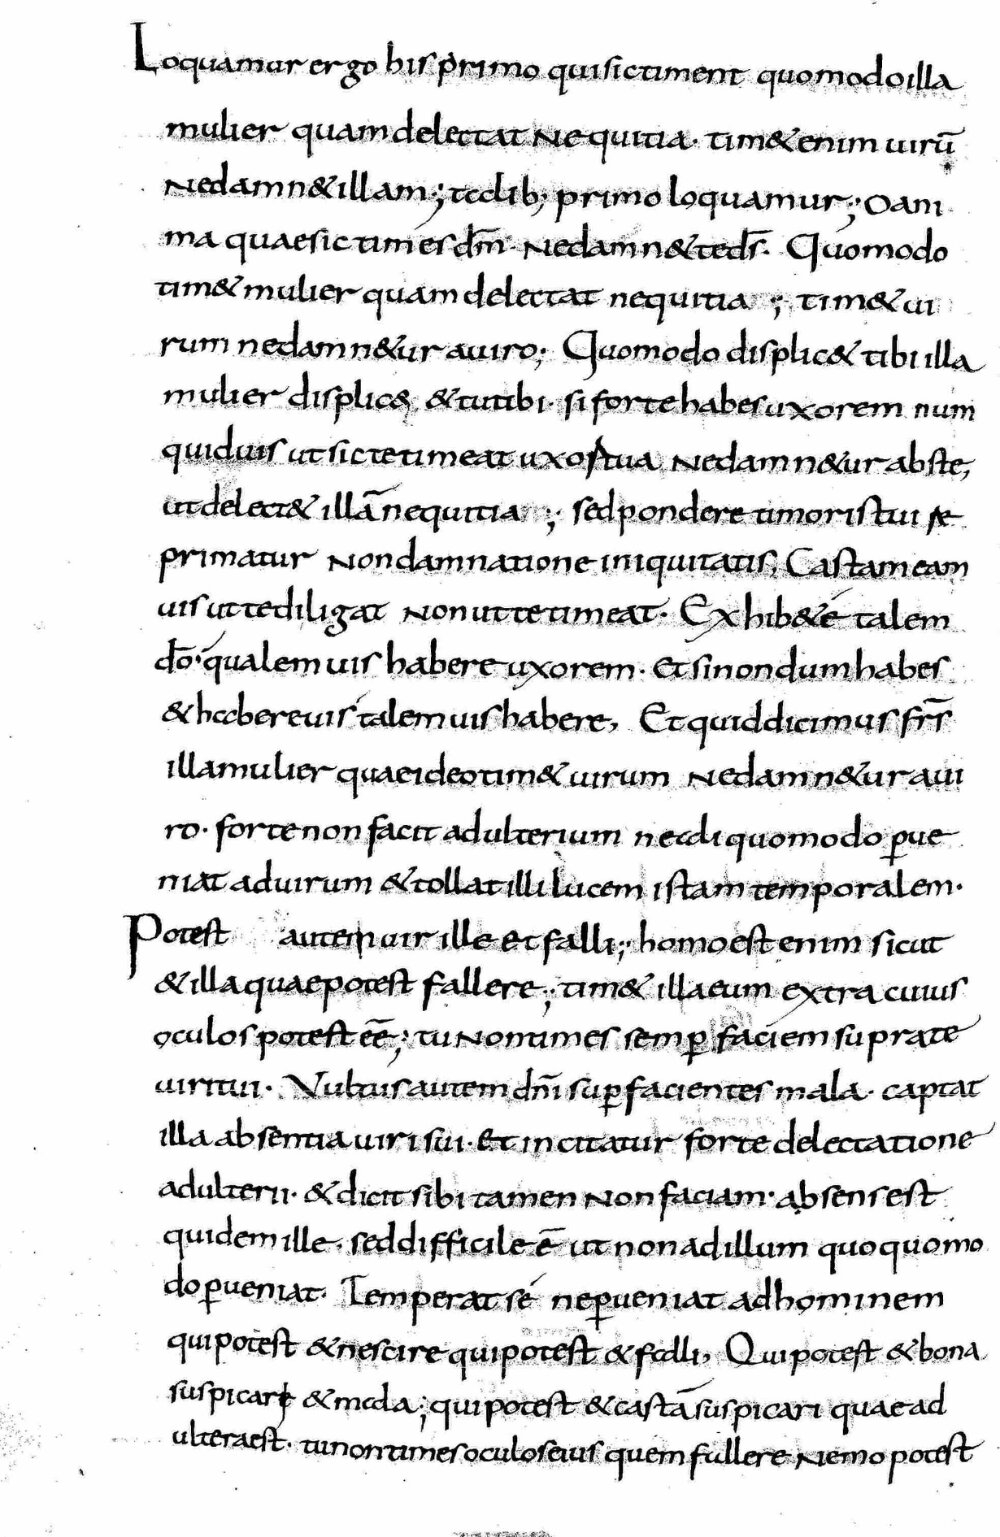 Loquamur ergo his primo qui sic timent quomodo illa
mulier quam delectat nequitia. tim& enim uirū
Ne damn& illam; talib; primo loquamur; O ani
ma quae sic times dm̄. Ne damn& te ds̄. Quomodo
tim& mulier quam delectat nequitia; tim& ui
rum ne damn&ur a uiro; Quomodo displic& tibi illa
mulier displic& & tu tibi. si forte habes uxorem num
quid uis ut sic te timeat uxor tua Ne damn&ur abs te,
ut delect& illā nequitia; sed pondere timoris tui re
primatur Non damnatione iniquitatis, Castam eam
uis ut te diligat Non ut te timeat. Exhib& é talem
dō. qualem uis habere uxorem. Et si nondum habes
& habere uis talem uis habere, Et quid dicimus frs̄
illa mulier quae ideo tim& uirum Ne damn&ur a ui
ro. forte non facit adulterium ne aliquomodo ꝑue
niat ad uirum & tollat illi lucem istam temporalem.
Potest autem uir ille et falli; homo est enim sicut
& illa quae potest fallere; tim& illa eum extra cuius
oculos potest eē; tu Non times semꝑ faciem supra te
uiri tui. Vultus autem dnī suꝑ facientes mala. captat
illa absentia uiri sui. Et incitatur forte delectatione
adulterii. & dicit sibi tamen Non faciam. absens est
quidem ille. sed difficile ē ut non ad illum quoquomo
do ꝑueniat. Temperat sé ne ꝑueniat ad hominem
qui potest & nescire qui potest & falli, Qui potest & bona
suspicari & mala; qui potest & castā suspicari quae ad
ultera est. tu non times oculos eius quem fallere Nemo potest